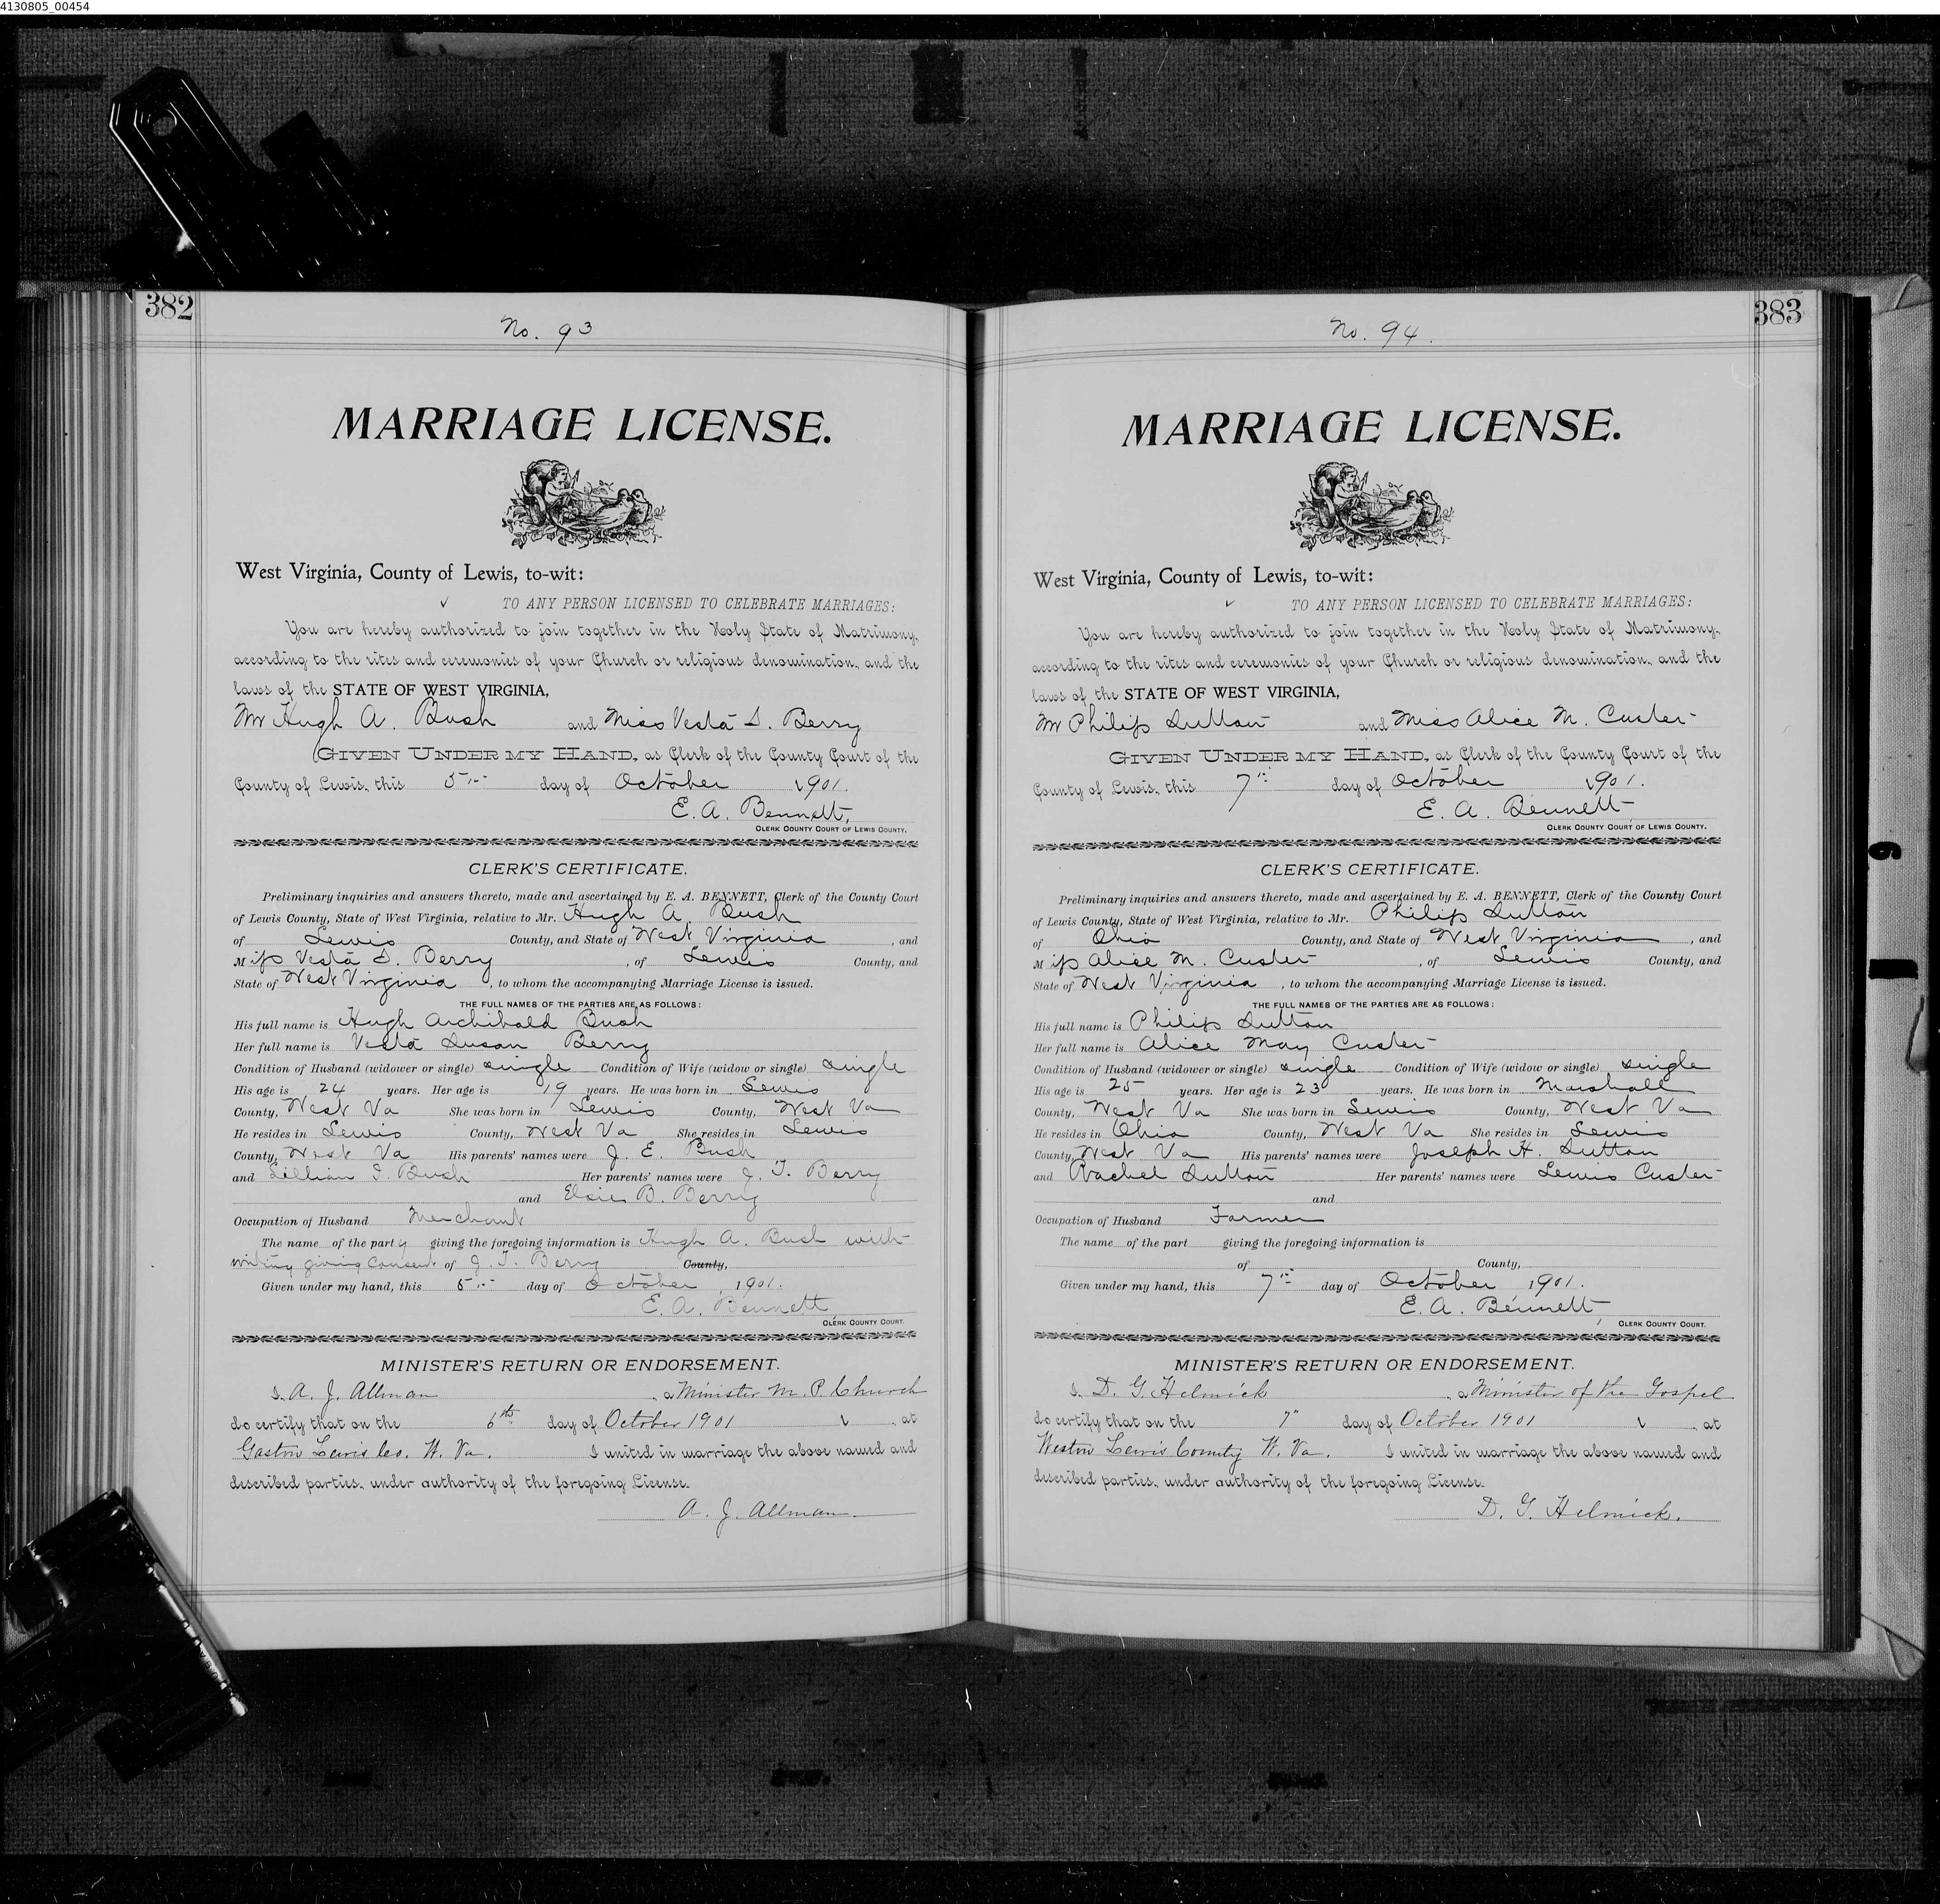 4130805_00454
382
No. 93
MARRIAGE LICENSE.
West Virginia, County of Lewis, to-wit:
TO ANY PERSON LICENSED TO CELEBRATE MARRIAGES:
You are hereby authorized to join together in the Holy State of Matrimony,
according to the rites and ceremonies of your Church or religious denomination, and the
laws of the STATE OF WEST VIRGINIA,
Mr Hugh A. Bush and Miss Vesta S. Berry
GIVEN UNDER MY HAND, as Clerk of the County Court of the
County of Lewis, this 5th day of October 1901.
E. A. Bennett,
CLERK COUNTY COURT OF LEWIS COUNTY.
CLERK'S CERTIFICATE.
Preliminary inquiries and answers thereto, made and ascertained by E. A. BENNETT, Clerk of the County Court
of Lewis County, State of West Virginia, relative to Mr. Hugh A. Bush
of Lewis County, and State of West Virginia, and
Miss Vesta S. Berry, of Lewis County, and
State of West Virginia, to whom the accompanying Marriage License is issued.
THE FULL NAMES OF THE PARTIES ARE AS FOLLOWS:
His full name is Hugh Archibald Bush
Her full name is Vesta Susan Berry
Condition of Husband (widower or single) single Condition of Wife (widow or single) single
His age is 24 years. Her age is 19 years. He was born in Lewis
County, West Va She was born in Lewis County, West Va
He resides in Lewis County, West Va She resides in Lewis
County, West Va His parents' names were J. E. Bush
and Lillian I. Bush Her parents' names were J. T. Berry
and Elsie B. Berry
Occupation of Husband Merchant
The name of the party giving the foregoing information is Hugh A. Bush with
writing giving consent of J. T. Berry County,
Given under my hand, this 5th day of October, 1901.
E. A. Bennett
CLERK COUNTY COURT.
MINISTER'S RETURN OR ENDORSEMENT.
I, A. J. Allman, a Minister M. P. Church
do certify that on the 6th day of October 1901, at
Gaston Lewis Co. W. Va. I united in marriage the above named and
described parties, under authority of the foregoing License.
A. J. Allman.
383
No. 94.
MARRIAGE LICENSE.
West Virginia, County of Lewis, to-wit:
TO ANY PERSON LICENSED TO CELEBRATE MARRIAGES:
You are hereby authorized to join together in the Holy State of Matrimony,
according to the rites and ceremonies of your Church or religious denomination, and the
laws of the STATE OF WEST VIRGINIA,
Mr Philip Dutton and Miss Alice M. Custer
GIVEN UNDER MY HAND, as Clerk of the County Court of the
County of Lewis, this 7th day of October 1901.
E. A. Bennett
CLERK COUNTY COURT OF LEWIS COUNTY.
CLERK'S CERTIFICATE.
Preliminary inquiries and answers thereto, made and ascertained by E. A. BENNETT, Clerk of the County Court
of Lewis County, State of West Virginia, relative to Mr. Philip Dutton
of Ohio County, and State of West Virginia, and
Miss Alice M. Custer, of Lewis County, and
State of West Virginia, to whom the accompanying Marriage License is issued.
THE FULL NAMES OF THE PARTIES ARE AS FOLLOWS:
His full name is Philip Dutton
Her full name is Alice May Custer
Condition of Husband (widower or single) single Condition of Wife (widow or single) single
His age is 25 years. Her age is 23 years. He was born in Marshall
County, West Va She was born in Lewis County, West Va
He resides in Ohio County, West Va She resides in Lewis
County, West Va His parents' names were Joseph H. Dutton
and Rachel Dutton Her parents' names were Lewis Custer
and
Occupation of Husband Farmer
The name of the part giving the foregoing information is
of County,
Given under my hand, this 7th day of October 1901.
E. A. Bennett
CLERK COUNTY COURT.
MINISTER'S RETURN OR ENDORSEMENT.
I, D. G. Helmick, a Minister of the Gospel
do certify that on the 7" day of October 1901, at
Weston Lewis County W. Va. I united in marriage the above named and
described parties, under authority of the foregoing License.
D. G. Helmick.
9